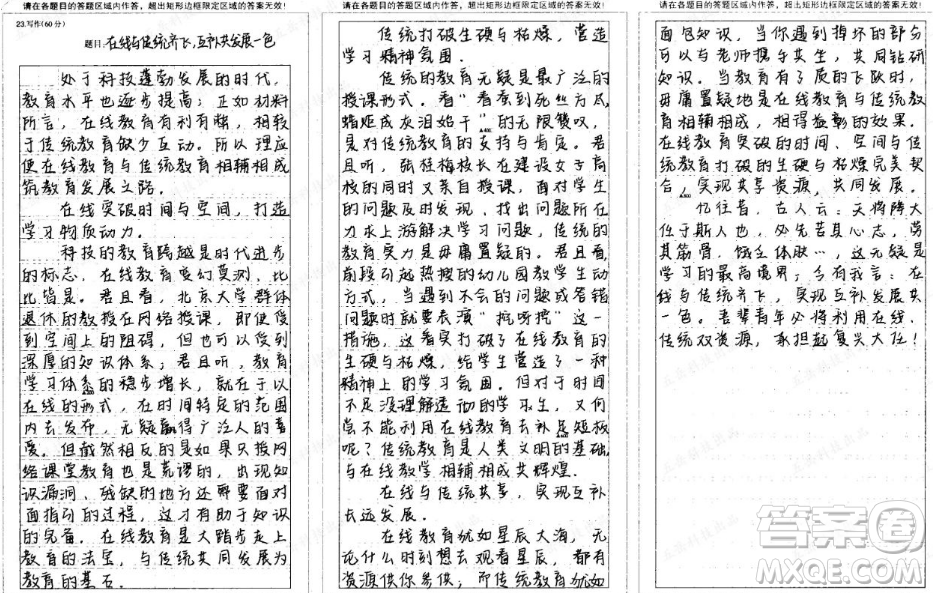 请在各题目的答题区域内作答，超出矩形边框限定区域的答案无效！
23.写作(60分)
题目：在线与传统齐飞，互补共发展一色
处于科技蓬勃发展的时代，
教育水平也逐步提高；正如材料
所言，在线教育有利有弊，相较
于传统教育缺少互动。所以理应
使在线教育与传统教育相辅相成
筑教育发展之路。
在线突破时间与空间，打造
学习物质动力。
科技的教育跨越是时代进步
的标志，在线教育变幻莫测，比
比皆是。君且看，北京大学群体
退休的教授在网络授课，即使受
到空间上的阻碍，但也可以受到
深厚的知识体系；君且听，教育
学习体系的稳步增长，就在于以
在线的形式，在时间特定的范围
内去发布，无疑赢得广泛人的喜
爱。但截然相反的是如果只报网
络课堂教育也是荒谬的，出现知
识漏洞、残缺的地方还需要面对
面指引的过程，这才有助于知识
的完备。在线教育是大踏步走上
教育的法宝，与传统共同发展为
教育的基石。
请在各题目的答题区域内作答，超出矩形边框限定区域的答案无效！
传统打破生硬与枯燥，营造
学习精神氛围。
传统的教育无疑是最广泛的
授课形式。看"春蚕到死丝方尽，
蜡炬成灰泪始干"的无限赞叹，
是对传统教育的支持与肯定。君
且听，张桂梅校长在建设女子高
校的同时又亲自授课，面对学生
的问题及时发现、找出问题所在
力求上游解决学习问题，传统的
教育实力是毋庸置疑的。君且看，
前段引起热搜的幼儿园教学活动
方式，当遇到不会的问题或答错
问题时就要表演"挖呀挖"这一
措施，这着实打破了在线教育的
生硬与枯燥，给学生营造了一种
精神上的学习氛围。但对于时间
不足没理解透彻的学生，又何
尝不能利用在线教育去补足短板
呢？传统教育是人类文明的基础，
与在线教学相辅相成共辉煌。
在线与传统共享，实现互补
长远发展。
在线教育犹如星辰大海，无
论什么时刻想去观看星辰，都有
资源供你参供；而传统教育犹如
请在各题目的答题区域内作答，超出矩形边框限定区域的答案无效！
面包知识，当你遇到掉坏的部分
可以与老师携手共生，共同钻研
知识。当教育有了质的飞跃时，
毋庸置疑地是在线教育与传统教
育相辅相成，相得益彰的效果。
在线教育突破的时间、空间与传
统教育打破的生硬与枯燥完美契
合，实现共享资源，共同发展。
忆往昔，古人云：天将降大
任于斯人也，必先苦其心志，劳
其筋骨，饿其体肤…，这无疑是
学习的最高境界；今有我言：在
线与传统齐飞，实现互补发展共
一色。吾辈青年必将利用在线、
传统双资源，承担起复兴大任！
答案圈
MXQE.COM